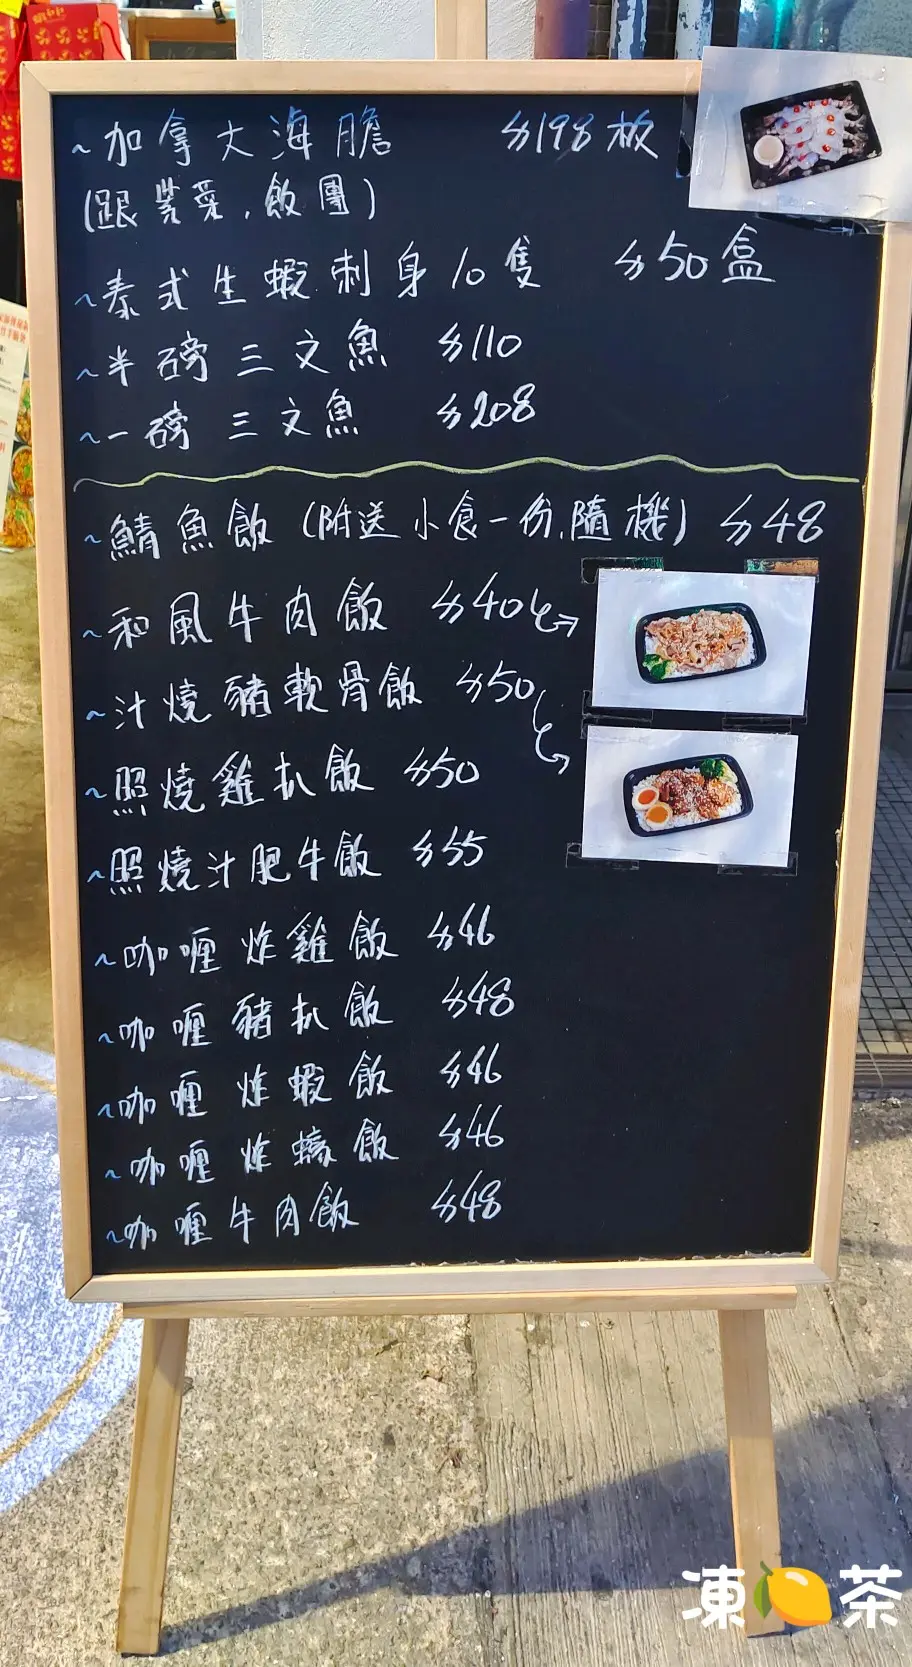 ~加拿大海膽 $198板
(跟紫菜.飯團)
~泰式生蝦刺身10隻 $50盒
~半磅三文魚 $110
~一磅三文魚 $208
~鯖魚飯(附送小食一份.隨機) $48
~和風牛肉飯 $40
~汁燒豬軟骨飯 $50
~照燒雞扒飯 $50
~照燒汁肥牛飯 $55
~咖喱炸雞飯 $46
~咖喱豬扒飯 $48
~咖喱炸蝦飯 $46
~咖喱炸蠔飯 $46
~咖喱牛肉飯 $48
凍🍋茶